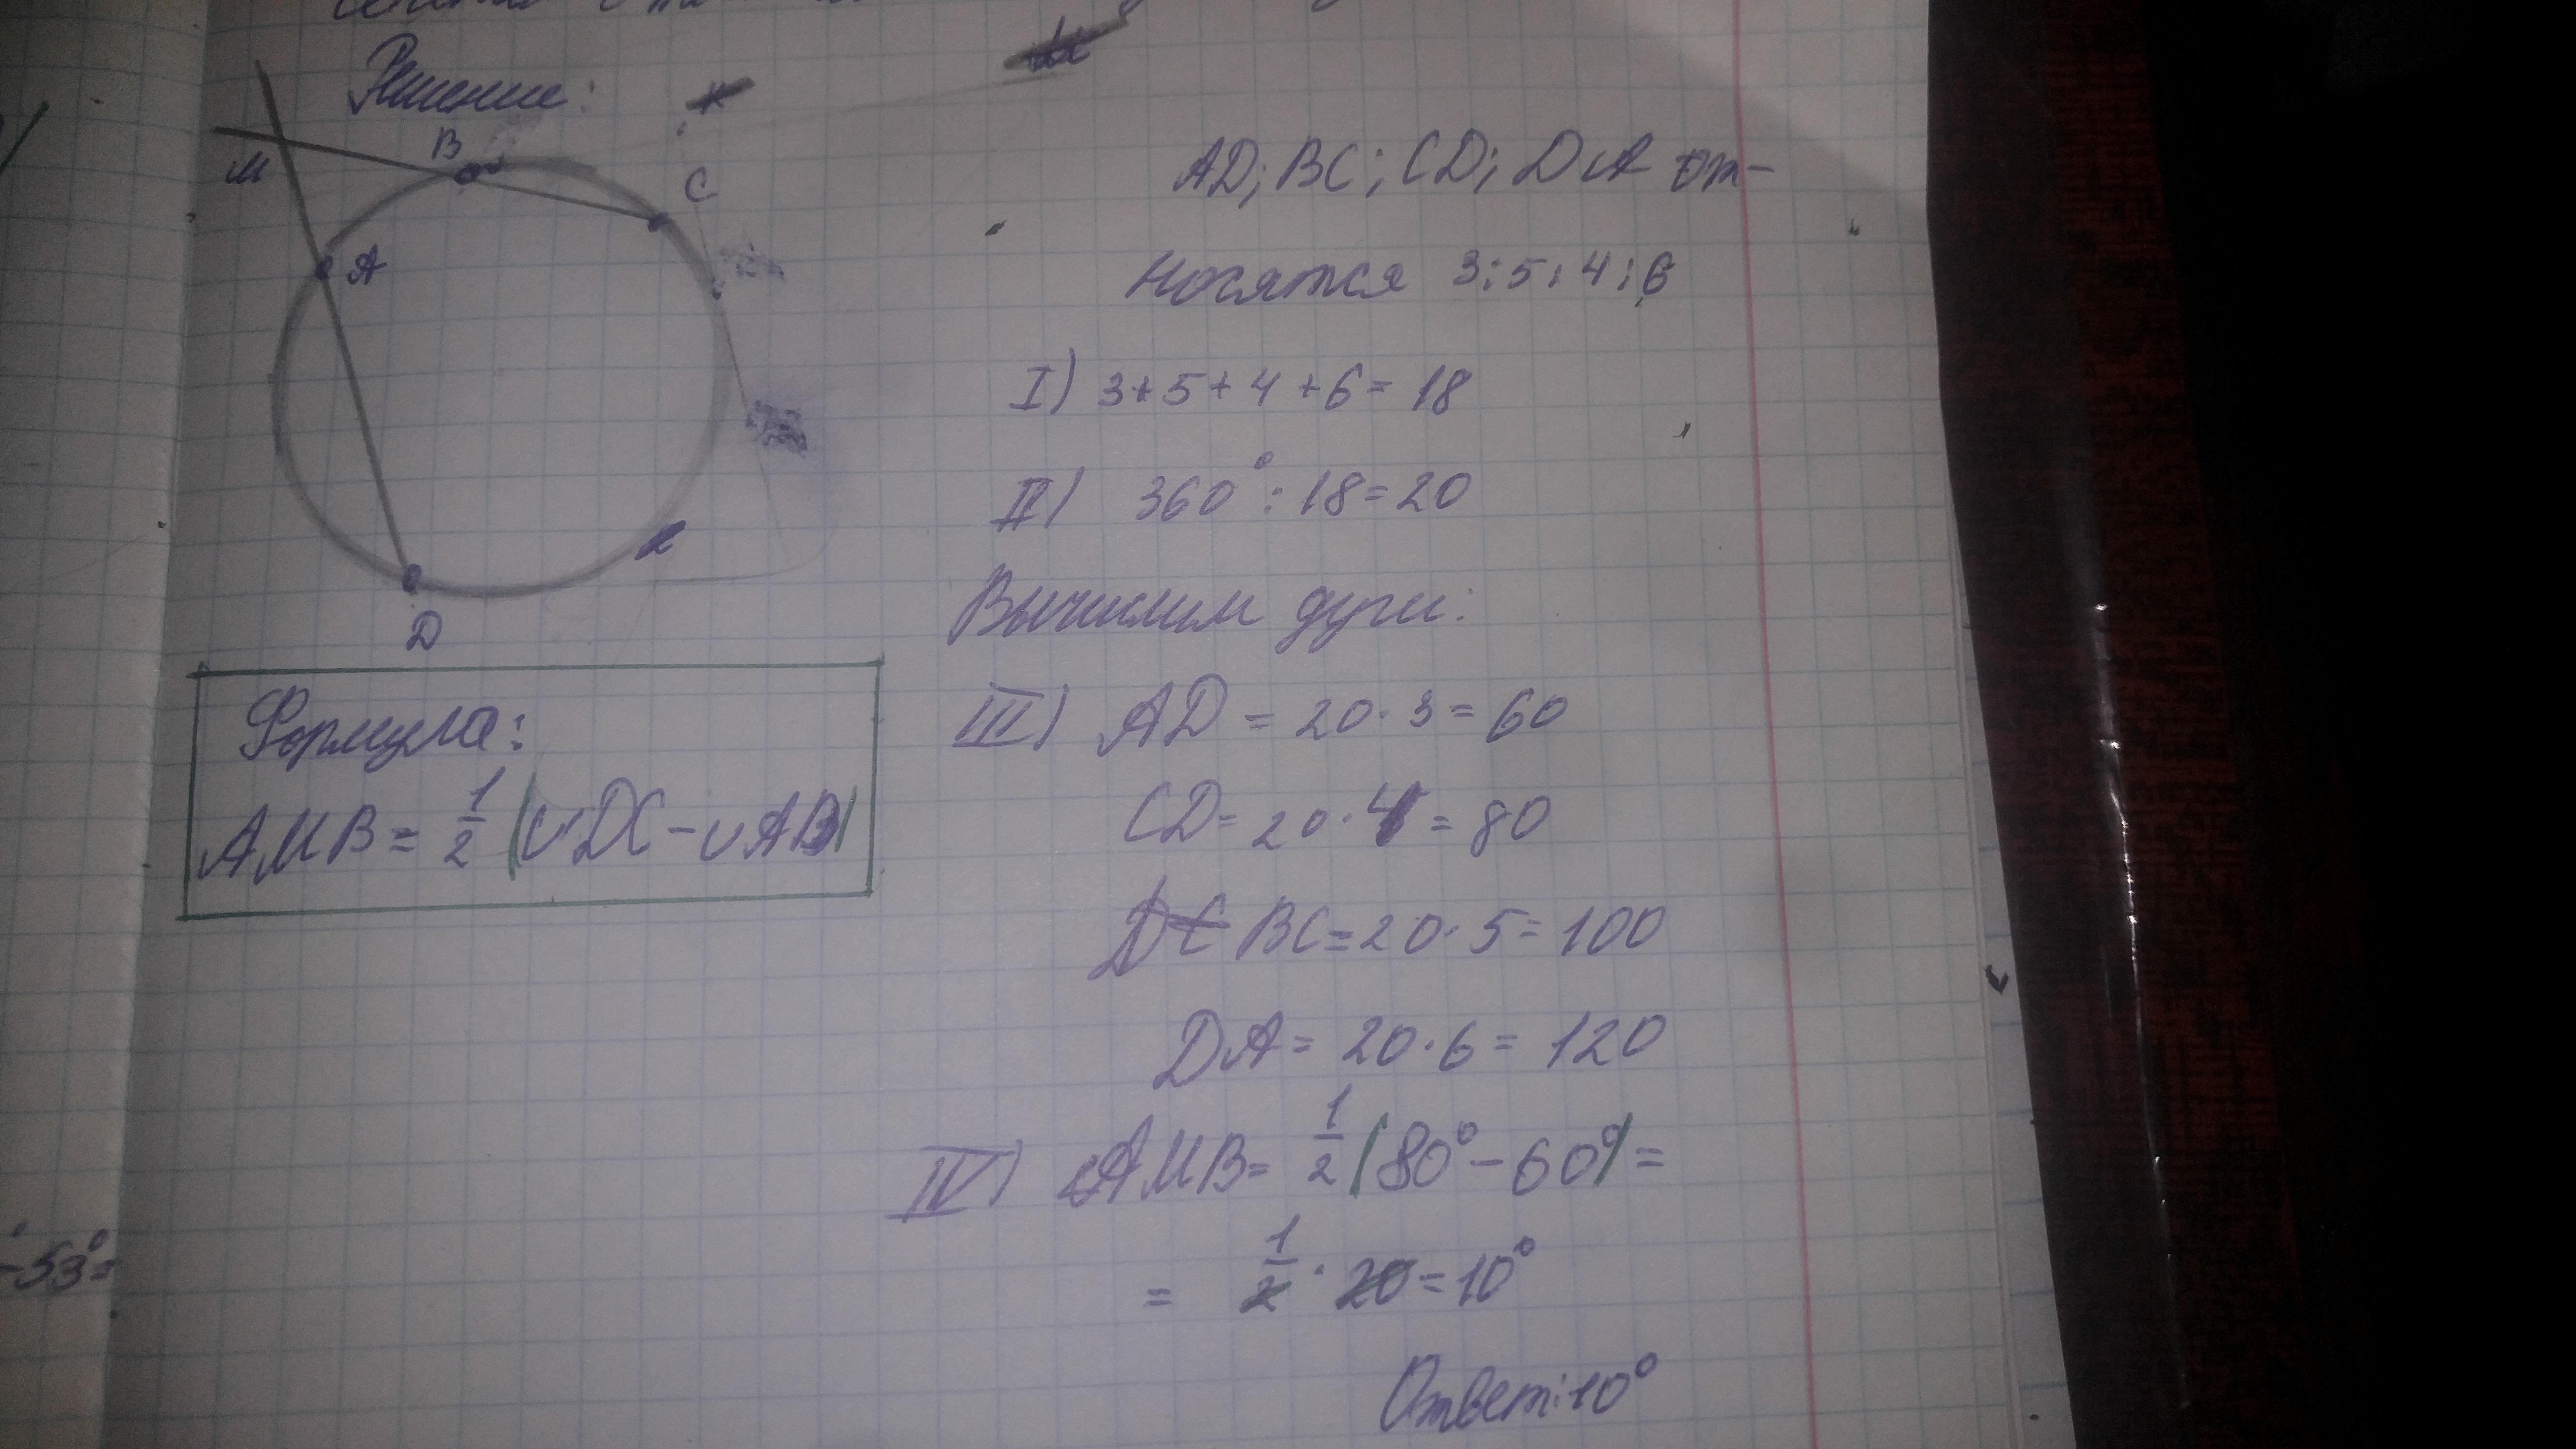 Решение:
M
B
C
A
D
Формула:
AMB = 1/2 (∪DC - ∪AB)
AD; BC; CD; DA от-
носятся 3; 5; 4; 6
I) 3+5+4+6=18
II) 360°:18=20
Вычислим дуги:
III) AD = 20·3=60
CD= 20·4=80
DC BC=20·5=100
DA= 20·6= 120
IV) ∠AMB= 1/2 (80°-60°)=
= 1/2 · 20=10°
Ответ:10°
-53°=